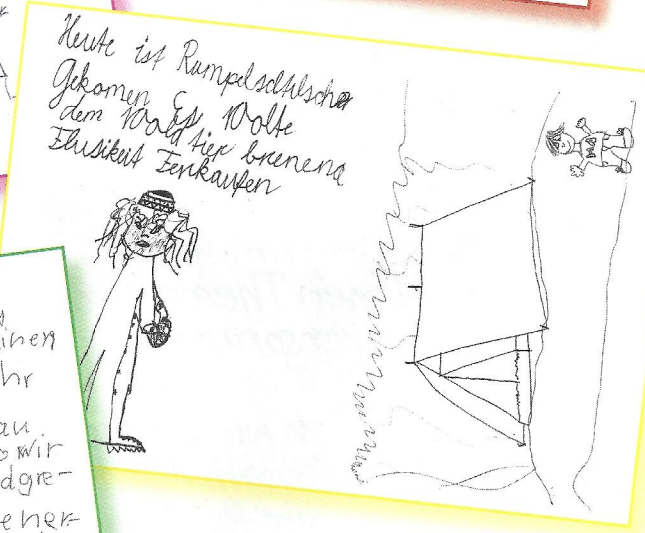 Heute ist Rumpelschtilschen
Gekomen Es Wolte
dem Wald tier brenend
Flusikeit Ferkaufen
inen
hr
au
wir
dgre-
eher-